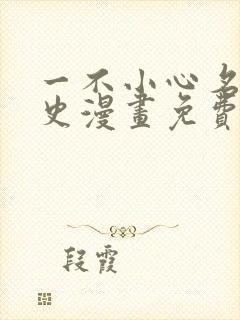 一不小心名
史漫畫免費
段霞